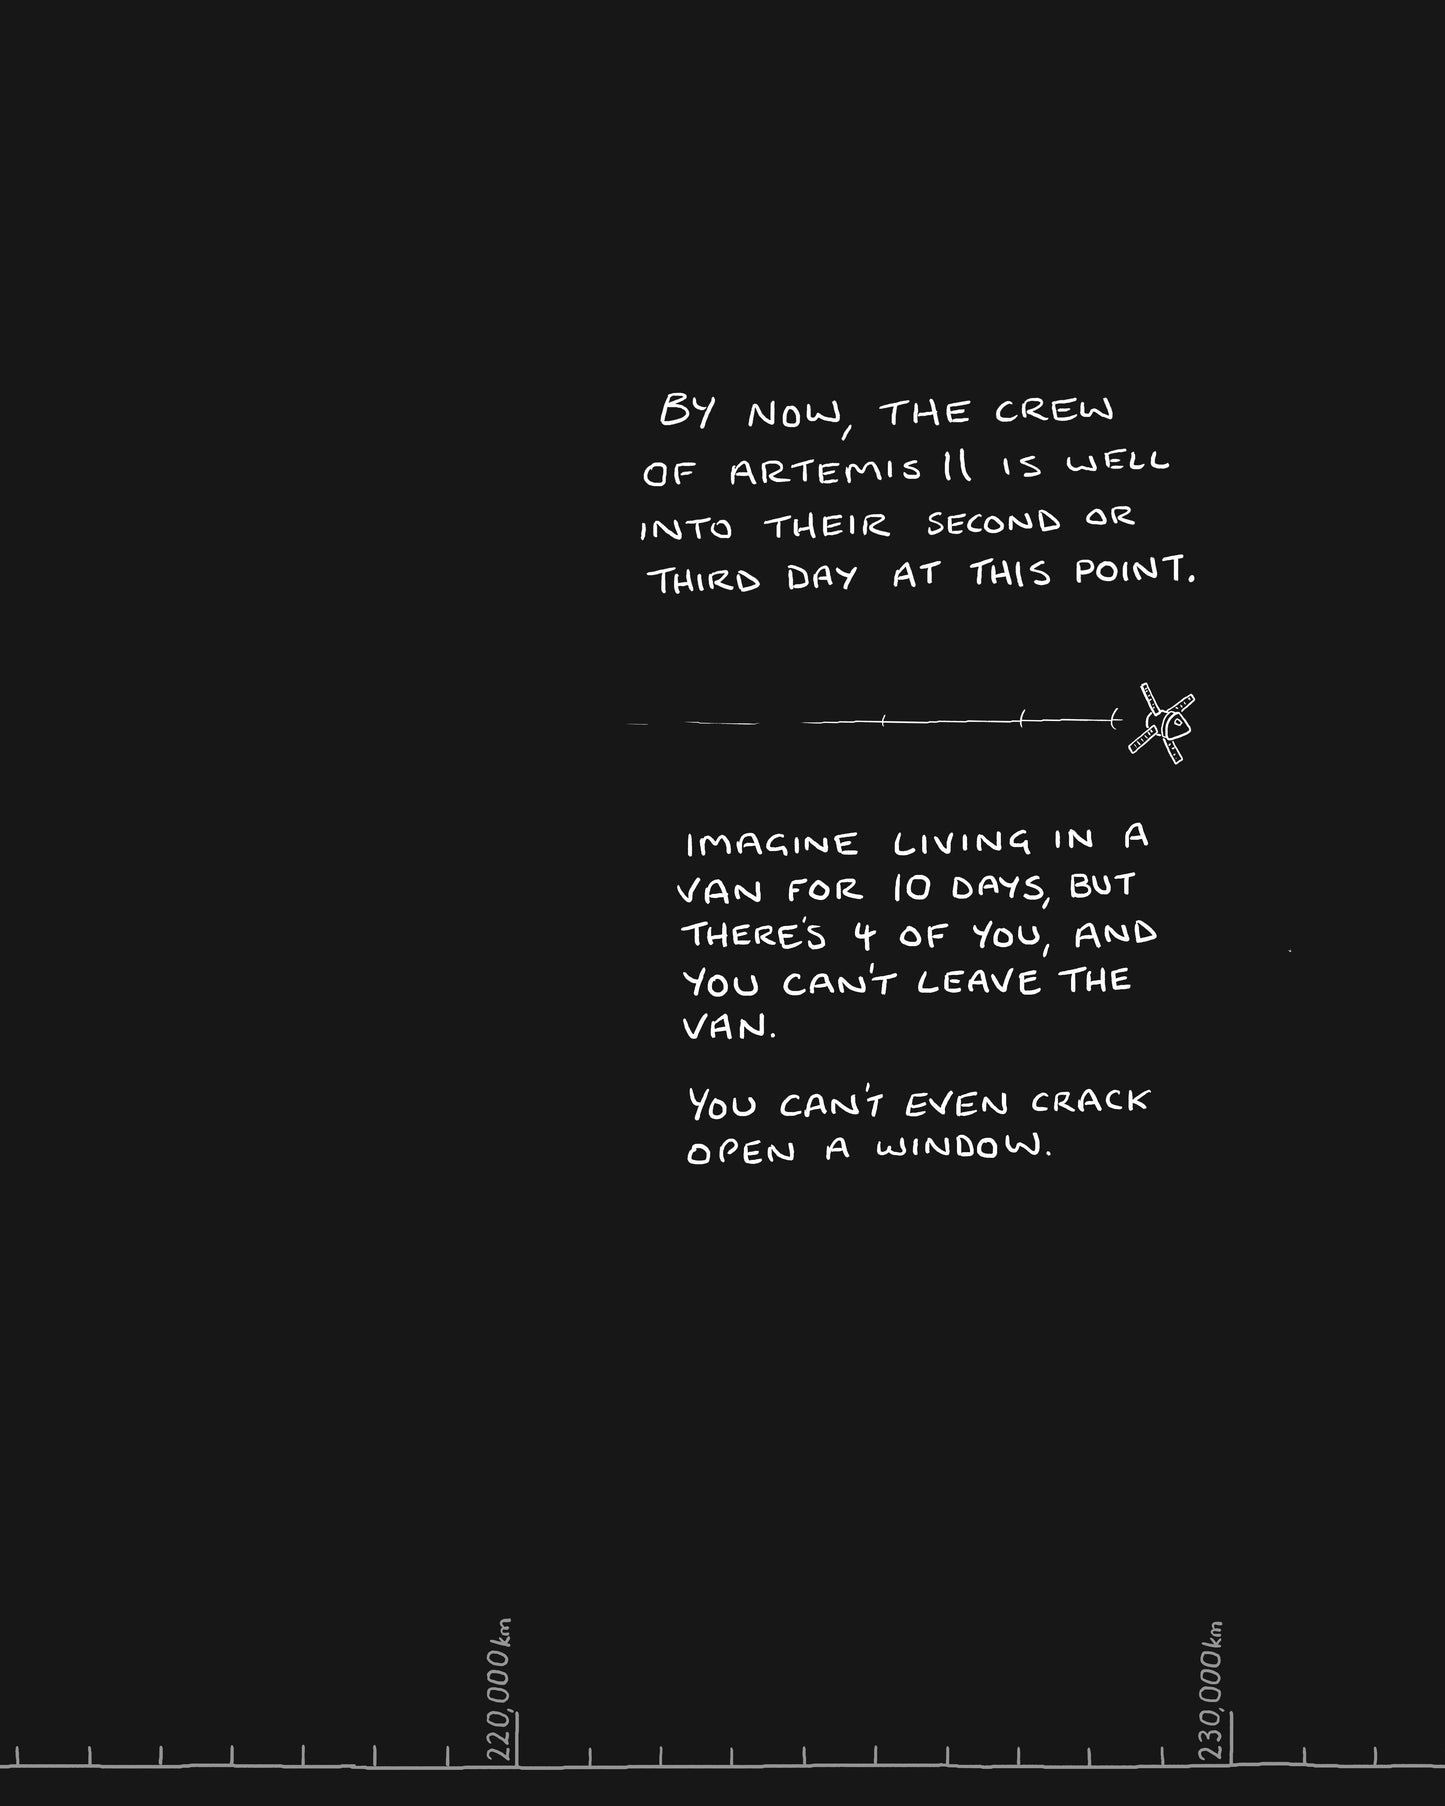 BY NOW, THE CREW
OF ARTEMIS II IS WELL
INTO THEIR SECOND OR
THIRD DAY AT THIS POINT.
IMAGINE LIVING IN A
VAN FOR 10 DAYS, BUT
THERE'S 4 OF YOU, AND
YOU CAN'T LEAVE THE
VAN.
YOU CAN'T EVEN CRACK
OPEN A WINDOW.
220,000km
230,000km